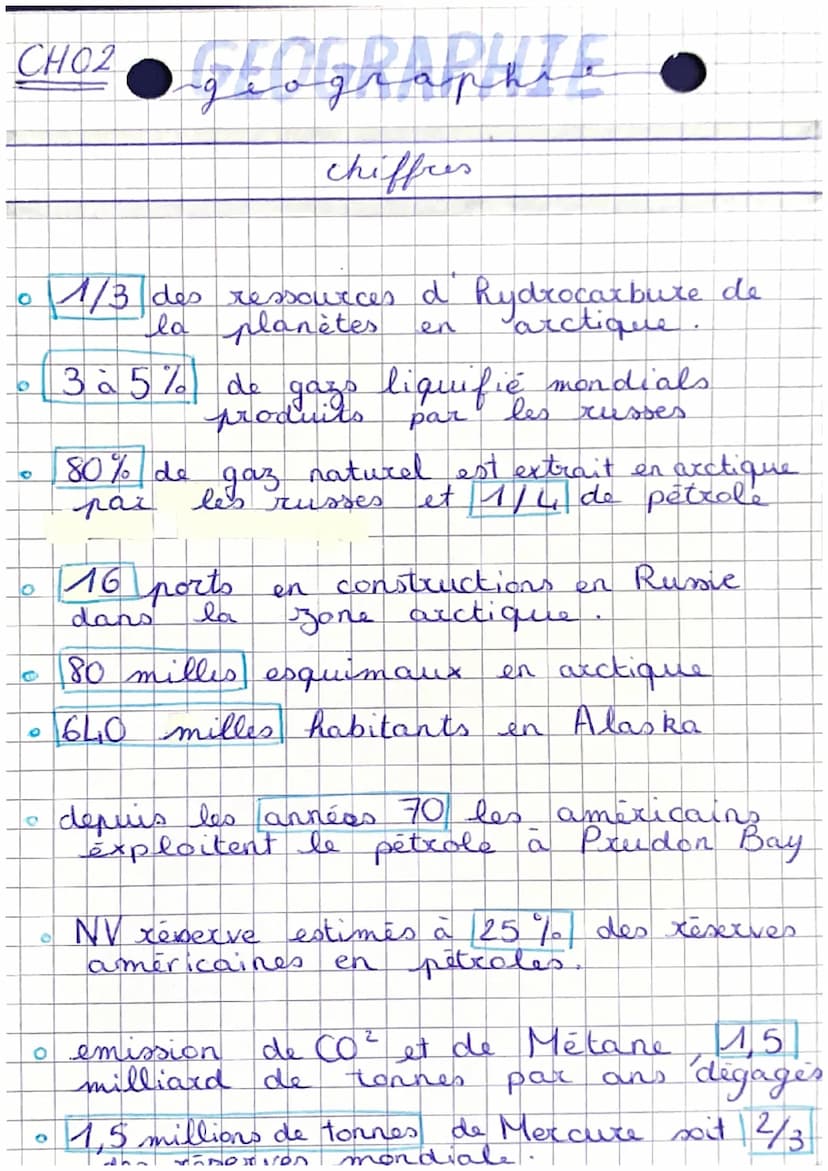 CHO2
GEOGRAPHIE
géographie
chiffres
1/3 des ressources d'hydrocarbure de
la planètes en arctique.
3 à 5% de gazs liquifié mondials
produits par les russes
80% de gaz naturel est extrait en arctique
par les russes et 1/4 de pétrole
16 ports en constructions en Russie
dans la zone arctique.
80 milles esquimaux en arctique
640 milles habitants en Alaska
depuis les années 70 les américains
éxploitent le pétrole à Prudon Bay
NV réserve estimés à 25% des réserves
américaines en pétroles.
emission de CO² et de Métane, 1,5
milliard de tonnes par ans dégagés
1,5 millions de tonnes de Mercure soit 2/3
des réserves mondiale.